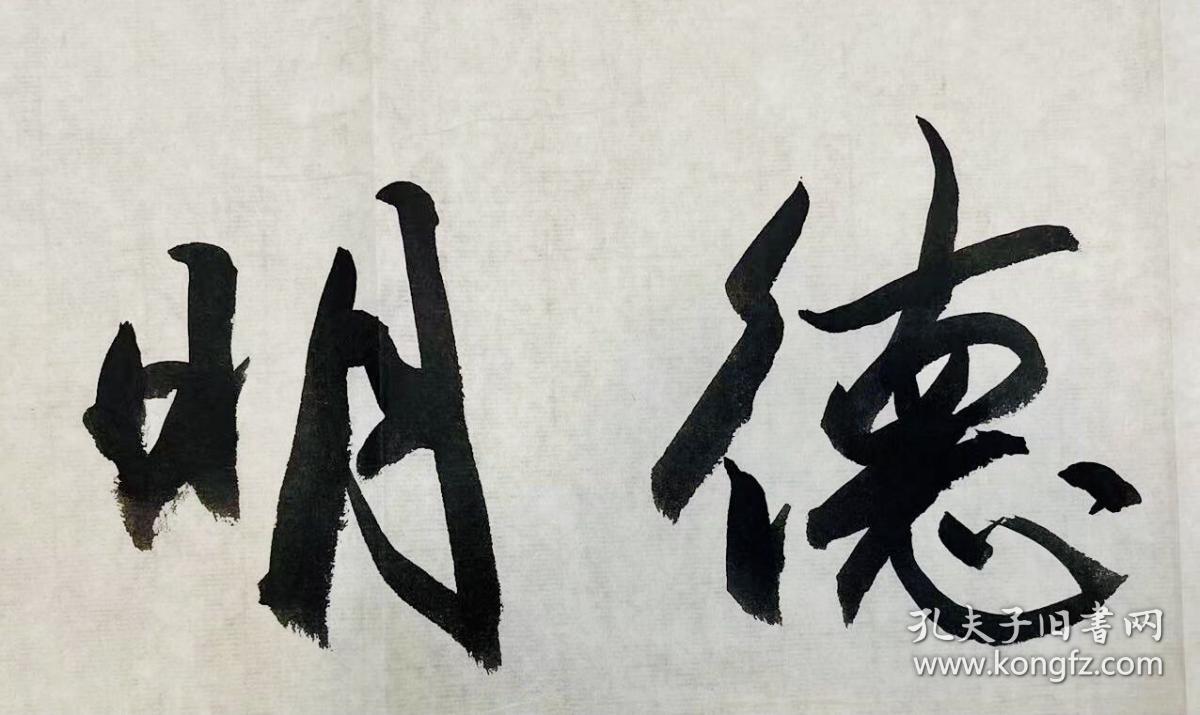 德明
孔夫子旧書网
www.kongfz.com